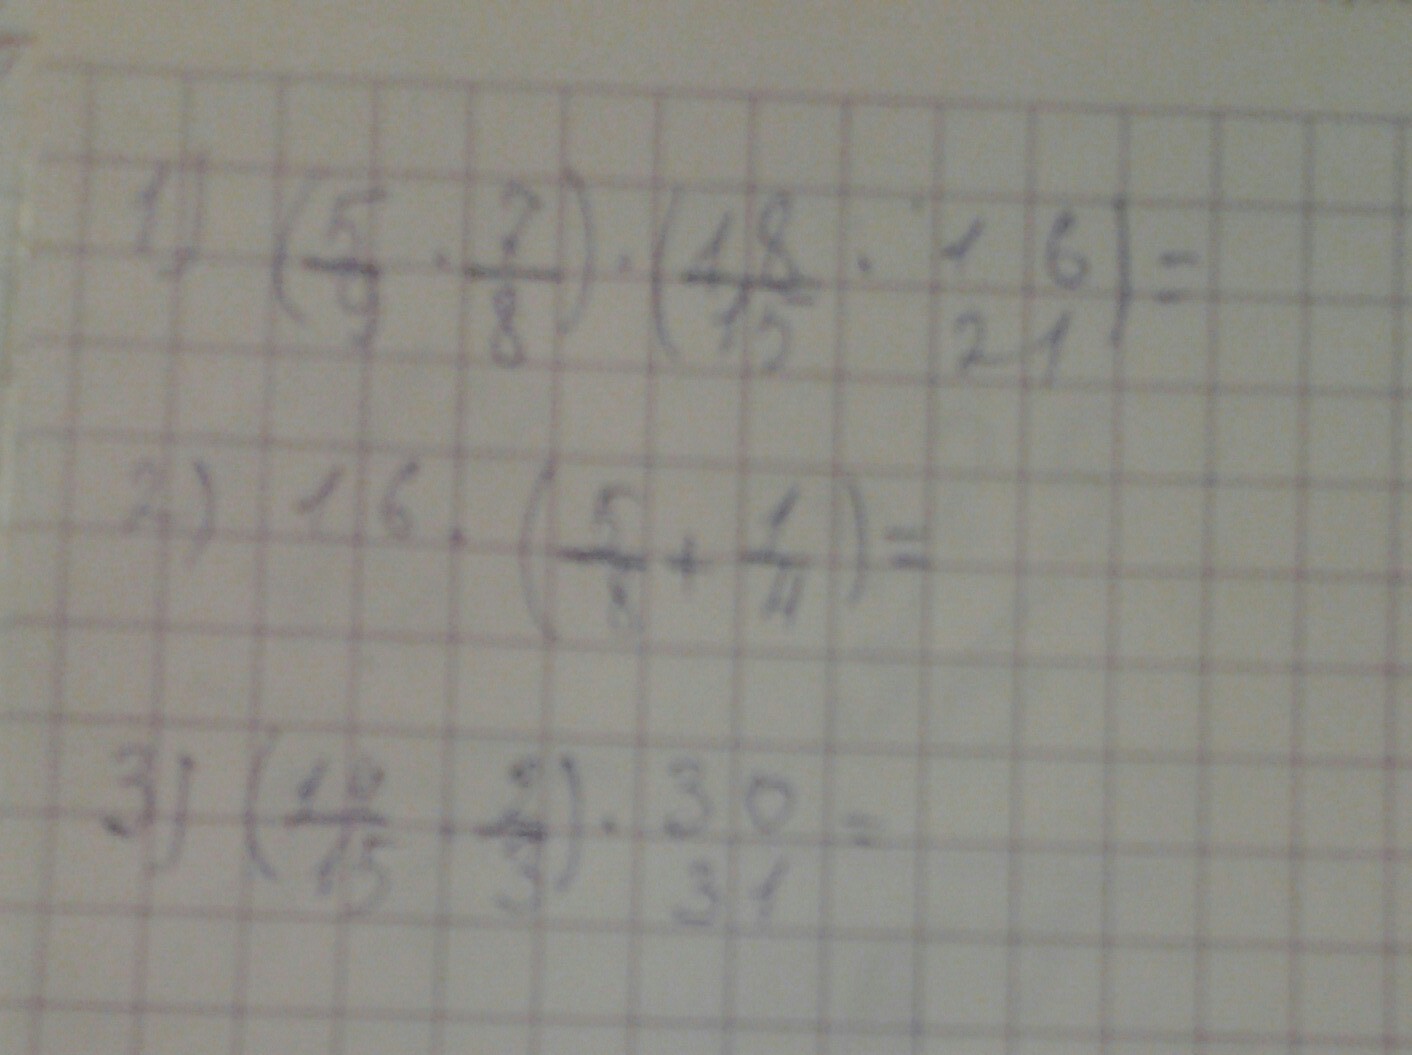 1) (5/9 · 7/8) · (18/15 · 16/21) =
2) 16 · (5/8 + 1/4) =
3) (19/15 · 2/3) · 30/31 =